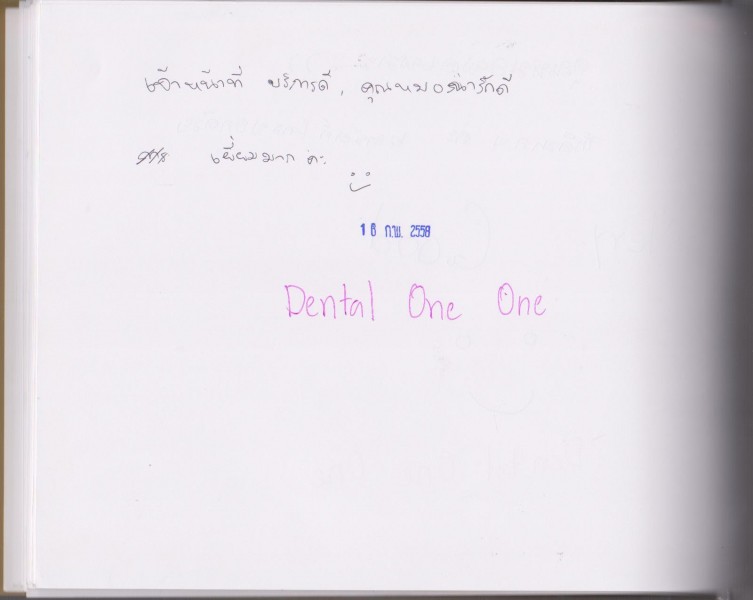 เจ้าหน้าที่ บริการดี, คุณหมอน่ารักดี
เยี่ยมมาก ค่ะ
16 ก.พ. 2558
Dental One One